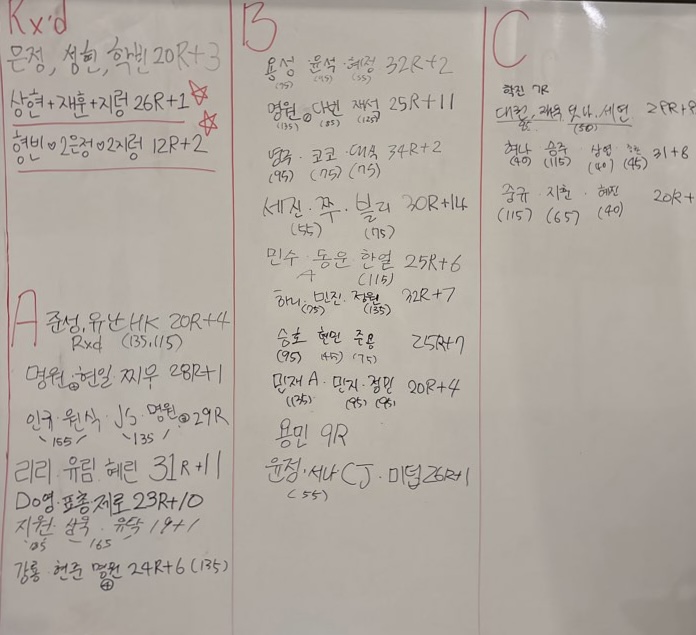 Rx'd
은정, 성현, 학빈 20R+3
상현+재훈+지령 26R+1
형빈 2은정 2지령 12R+2
A
준성, 유난 HK 20R+4
Rxd (135, 115)
명원 현일 찌부 28R+1
인규·원식·JS·명원 29R
155 135
리리 유림 혜린 31R+11
Do영·표총·제로 23R+10
지원·삼욱·유닥 19+1
165
강룡·현준 명원 24R+6 (135)
B
용성 윤석·혜정 32R+2
(75) (95) (55)
명원 다빈 재석 25R+11
(135) (85) (125)
코코·대욱 34R+2
(95) (75) (75)
세진·쭈·블리 30R+14
(55) (75)
민수·동운·한얼 25R+6
A (115)
하니·민진·정원 32R+7
(75) (135)
승호 현민 준용 25R+7
(95) (45) (75)
민재A·민지·정민 20R+4
(135) (95) (95)
용민 9R
윤정·서나 CJ·미텁 26R+1
(55)
C
학진 7R
세연
(50)
혜나 승주 31+8
(40) (115) (40) (45)
중규·지훈·혜진 20R+
(115) (65) (40)